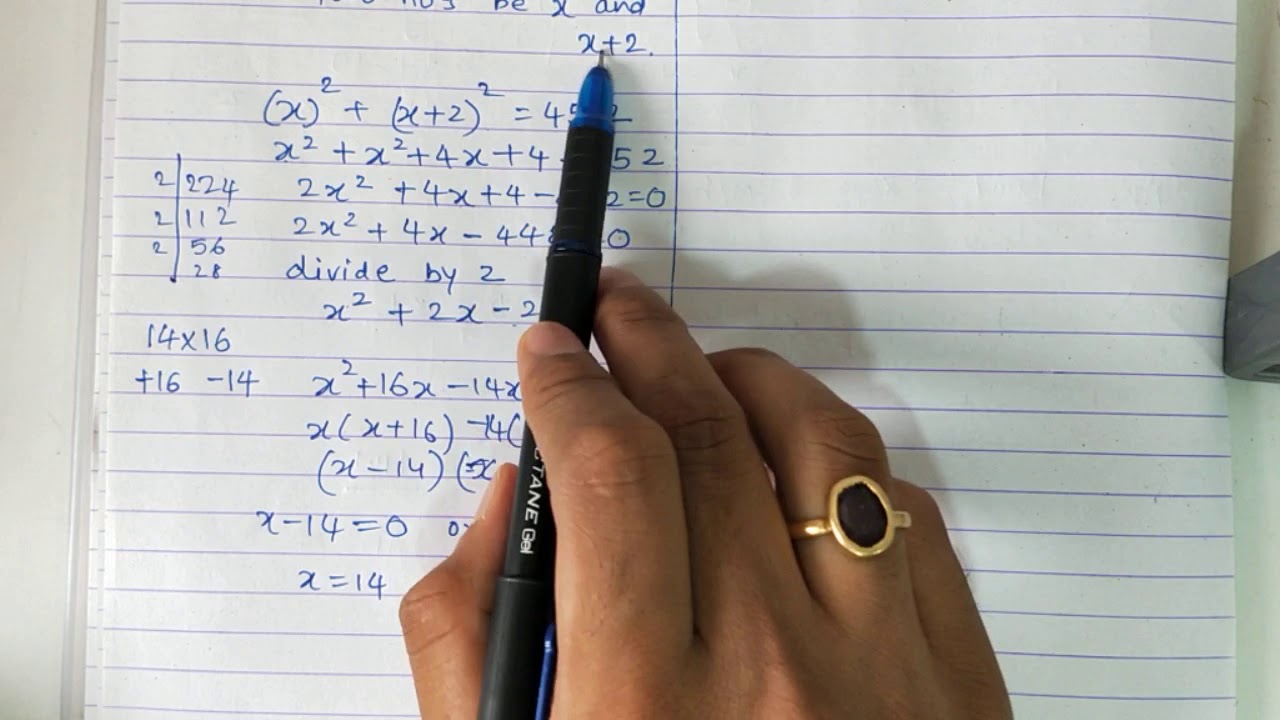 be x and
x+2.
(x)² + (x+2)² = 452
x² + x² + 4x + 4 - 452
2x² + 4x + 4 - 2=0
2x² + 4x - 448 0
divide by 2
x² + 2x - 2
2 | 224
2 | 112
2 | 56
28
14x16
+16 -14
x² + 16x - 14x
x(x+16) -14(
(x-14) (x
x-14=0 or
x=14
OCTANE Gel